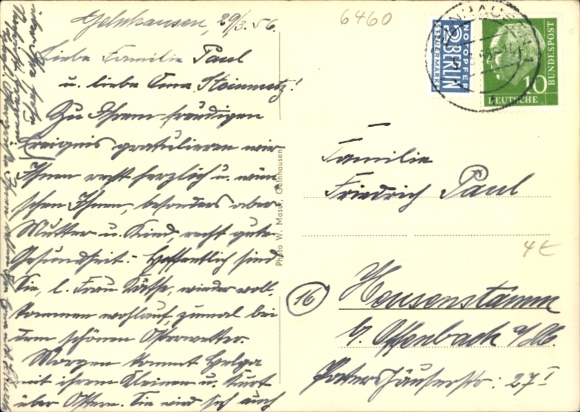 Gelnhausen, 29/3.56.
Liebe Familie Paul
u. liebe Oma Steinmetz!
Zu Ihrem freudigen
Ereignis gratulieren wir
Ihnen recht herzlich u. wün-
schen Ihnen, besonders aber
Mutter u. Kind, recht gute
Gesundheit. Hoffentlich sind
Sie, l. Frau Käthe, wieder voll-
kommen wohlauf, zumal bei
dem schönen Osterwetter.
Morgen kommt Helga
mit ihrem Kleinen u. Kurt
über Ostern. Sie wird sich auch
6460
NOTOPFER
2 BERLIN
STEUERMARKE
DEUTSCHE BUNDESPOST
10
Photo W. Mack, Gelnhausen
Familie
Friedrich Paul
4€
16
Heusenstamm
b/ Offenbach a/M.
Patershäuserstr: 27 I